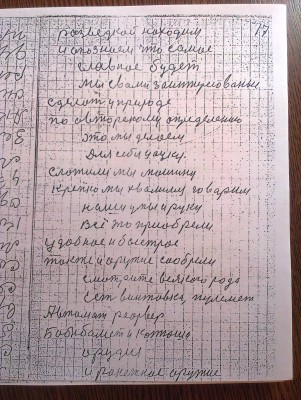 17
разведкой находим
и опознаем что самое
главное будет
мы с вами заинтересованы
сделают природе
по авторскому определению
это мы делаем
для себя науку.
сложили мы машину
крепко мы с вами говорим
наши умы и руки
всё это приобрели
удобное и быстрое
также и оружие изобрели
смотрите всякого рода
есть винтовка, пулемет
Автомат револвер
орудия
и ранежное оружие